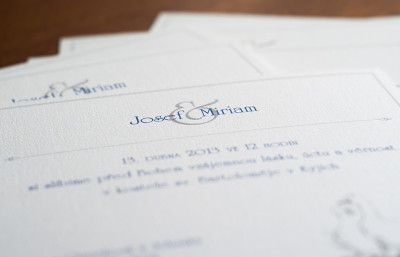 Josef & Miriam
Josef & Miriam
13. dubna 2013 ve 12 hodin
si slíbíme před Bohem vzájemnou lásku, úctu a věrnost
v kostele sv. Bartoloměje v Kyjích